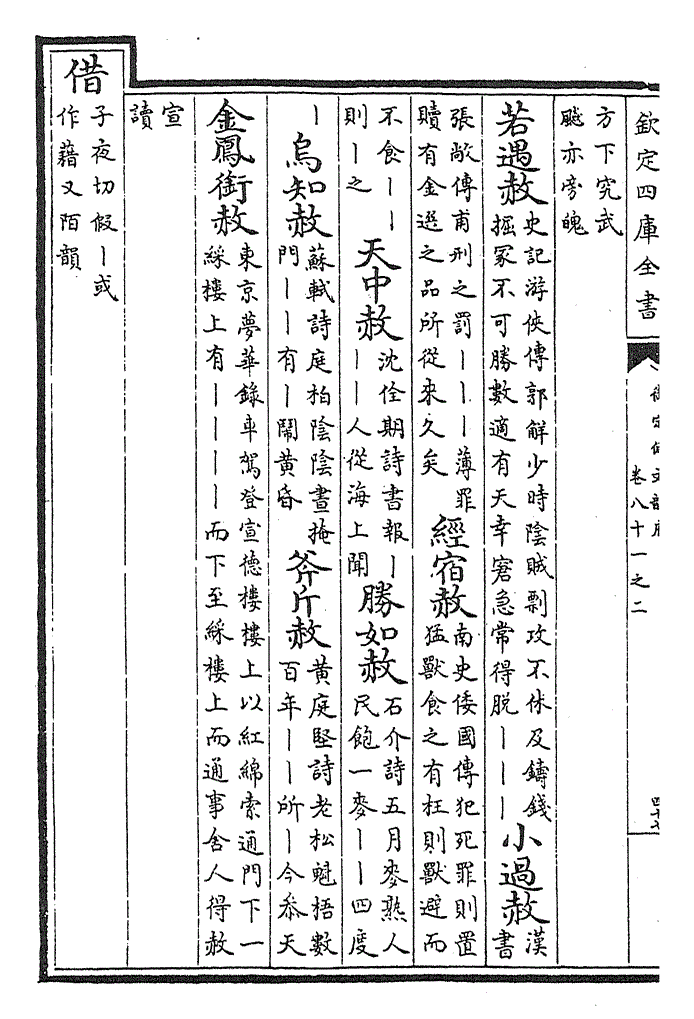 欽定四庫全書
卷八十一之二
方下究武
亦旁魄
若遇赦
史記游俠傳郭解少時陰賊剽攻不休及鑄錢
掘冢不可勝數適有天幸窘急常得脫｜｜｜
小過赦
漢
書
張敞傳甫刑之罰｜｜｜薄罪
贖有金選之品所從來久矣
經宿赦
南史倭國傳犯死罪則置
猛獸食之有枉則獸避而
不食｜｜
則｜之
天中赦
沈佺期詩書報｜
｜｜人從海上聞
勝如赦
石介詩五月麥熟人
民飽一麥｜｜四度
｜
烏知赦
蘇軾詩庭柏陰陰晝掩
門｜｜有｜鬧黃昏
斧斤赦
黃庭堅詩老松魁梧數
百年｜｜所｜今叅天
金鳳銜赦
東京夢華錄車駕登宣德樓樓上以紅綿索通門下一
綵樓上有｜｜｜｜而下至綵樓上而通事舍人得赦
宣
讀
借
子夜切假｜或
作藉又陌韻